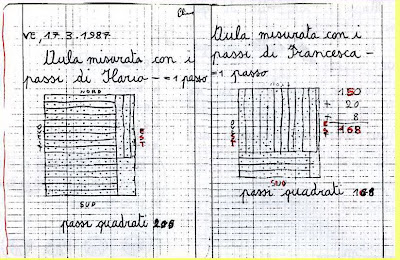 VE, 17.3.1987
Aula misurata con i
passi di Ilario - = 1 passo
NORD
OVEST
EST
SUD
passi quadrati 205
Aula misurata con i
passi di Francesca -
= 1 passo
OVEST
EST
SUD
150
+ 20
+ 8
168
passi quadrati 168